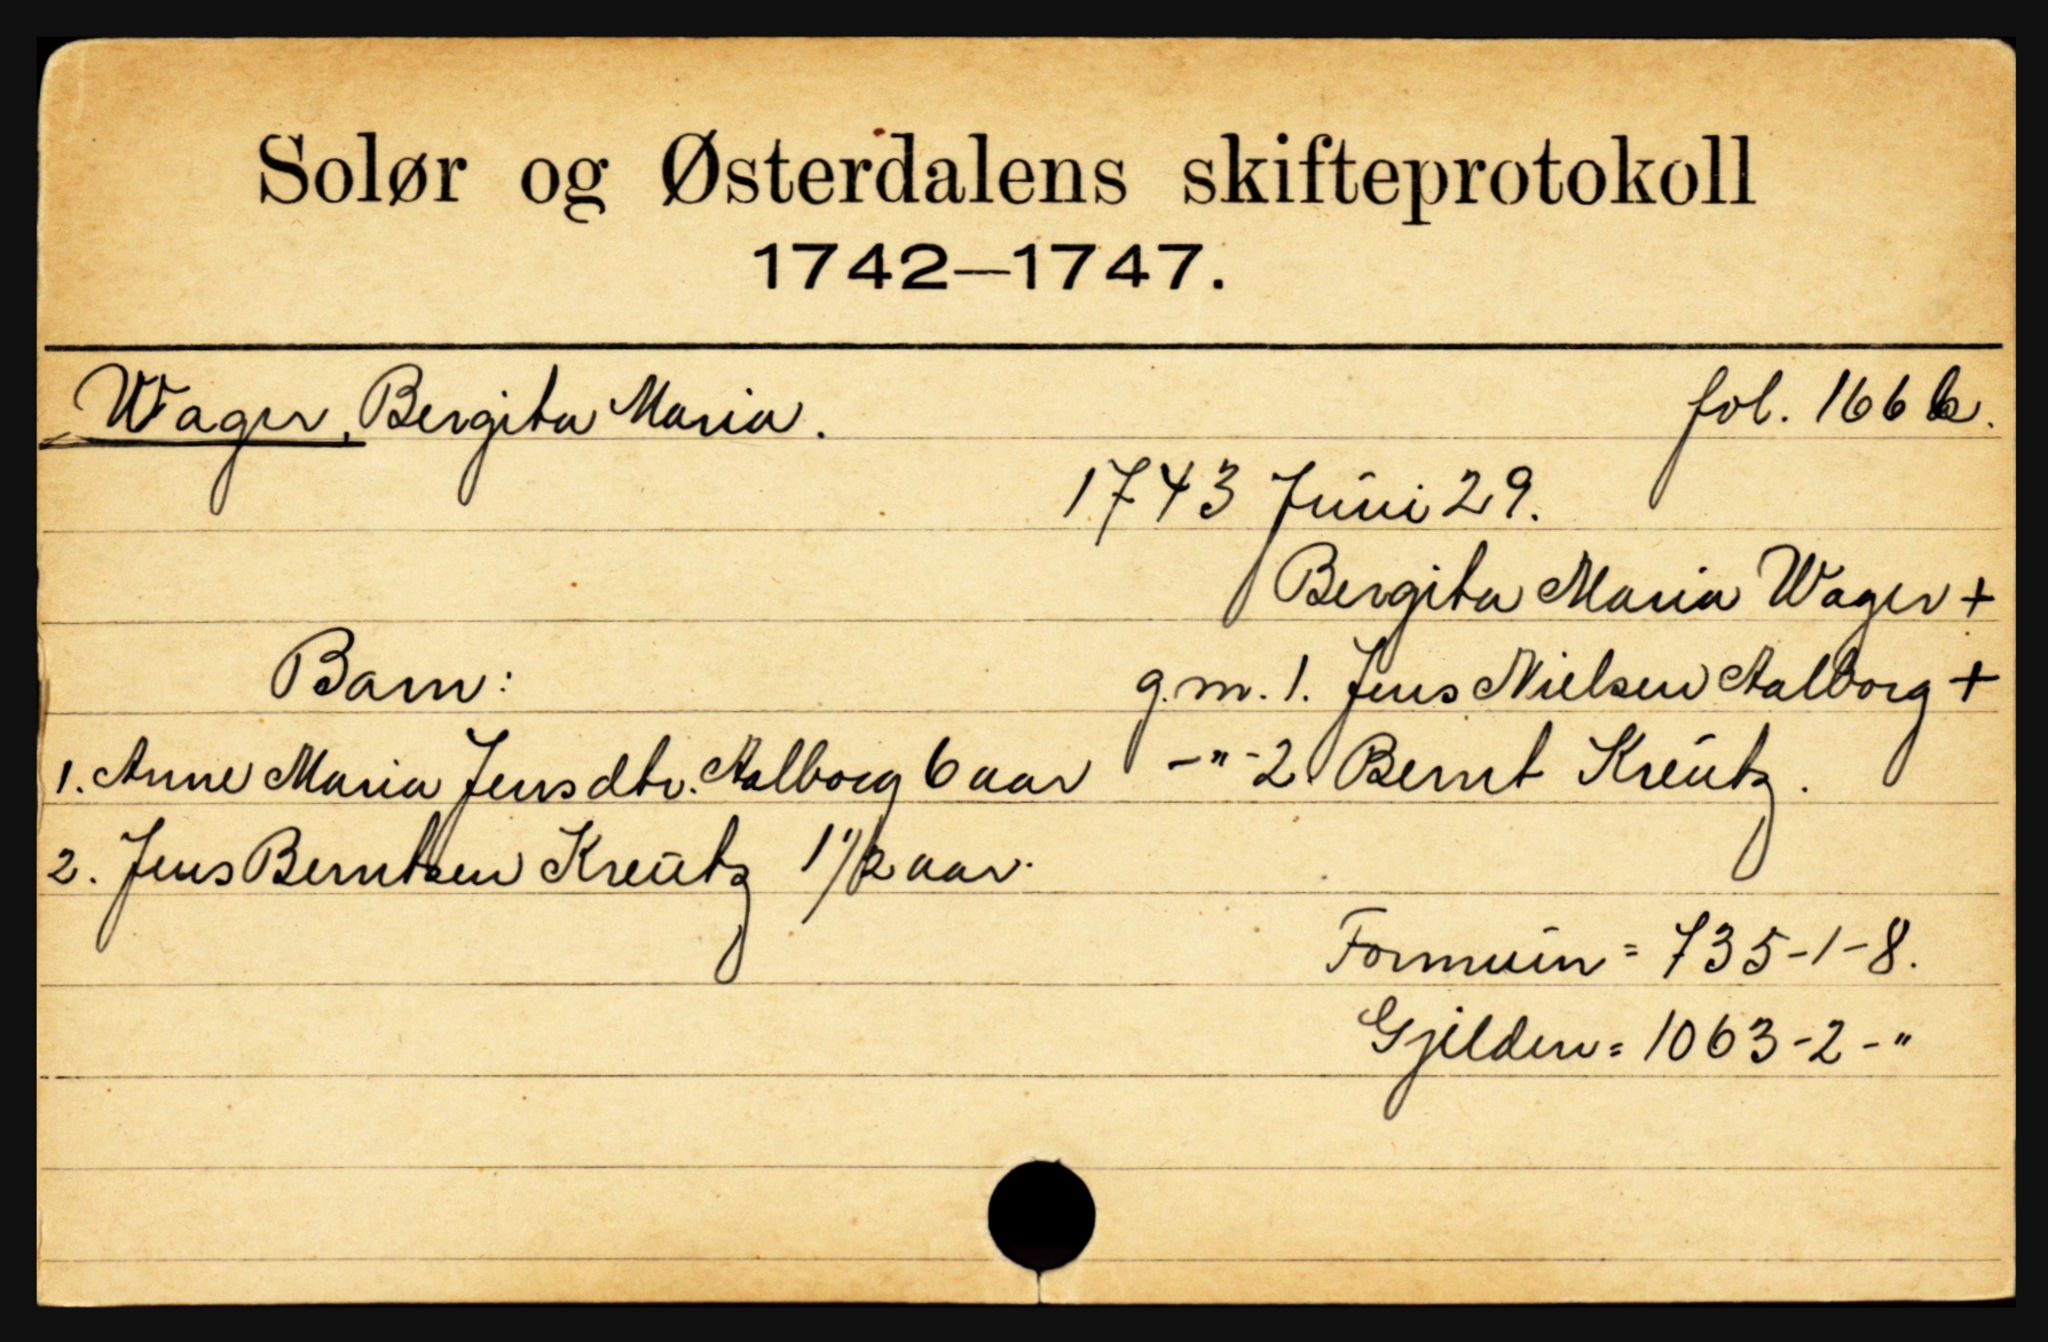 Solør og Østerdalens skifteprotokoll
1742—1747.
Wager, Bergita Maria. fol. 166 b.
1743 Juni 29.
Bergita Maria Wager +
Barn: g.m. 1. Jens Nielsen Aalborg +
1. Anne Maria Jensdtr. Aalborg 6 aar -"- 2. Bernt Kreutz.
2. Jens Berntsen Kreutz 1 1/2 aar.
Formuin = 735-1-8.
Gjelden = 1063-2-"